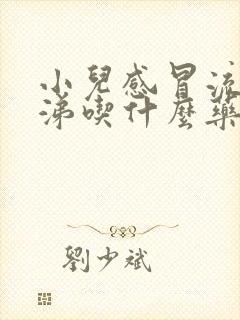 小兒感冒流
涕喫什麼藥
劉少斌